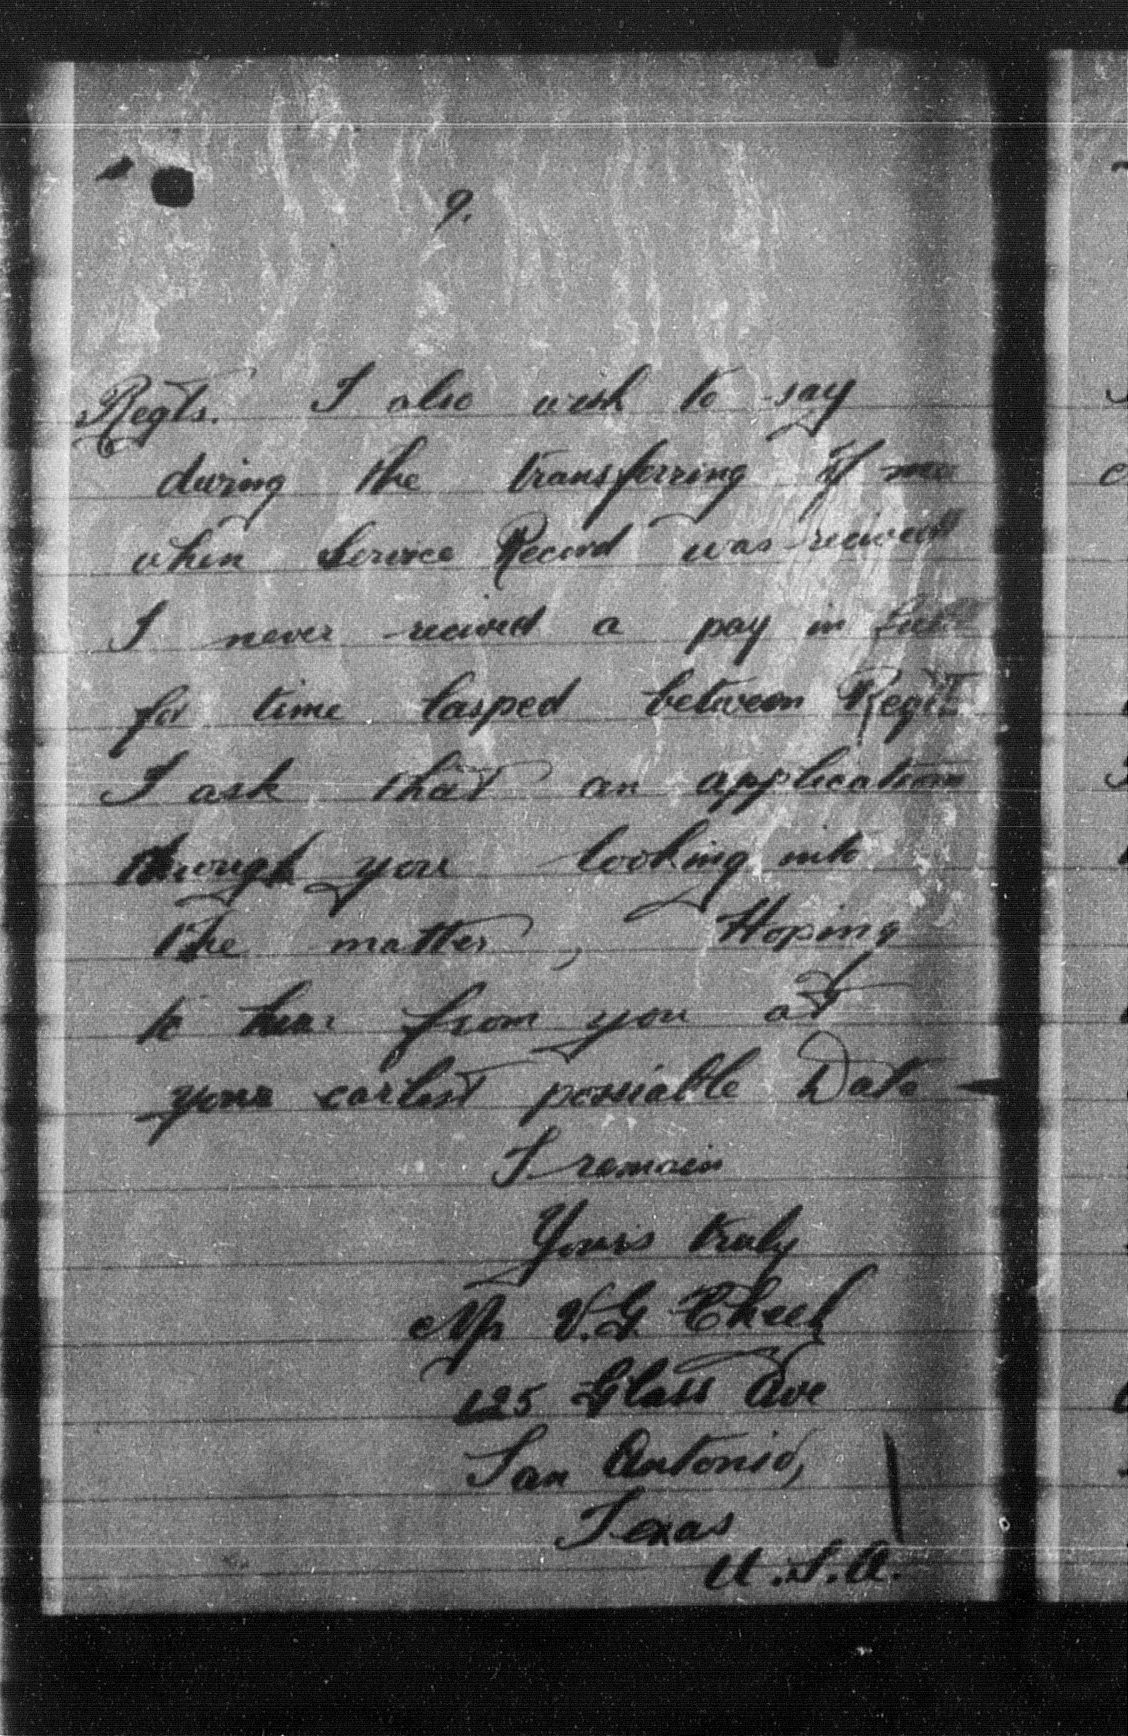 9.
Regts. I also wish to say
during the transferring of me
when Service Record was recived
I never recived a pay in full
for time lasped between Regts
I ask that an application
through you looking into
the matter, Hoping
to hear from you at
your earlest possiable Date
I remain
Yours truly
V.G. Cheek
125 Glass Ave
San Antonio,
Texas
U.S.A.